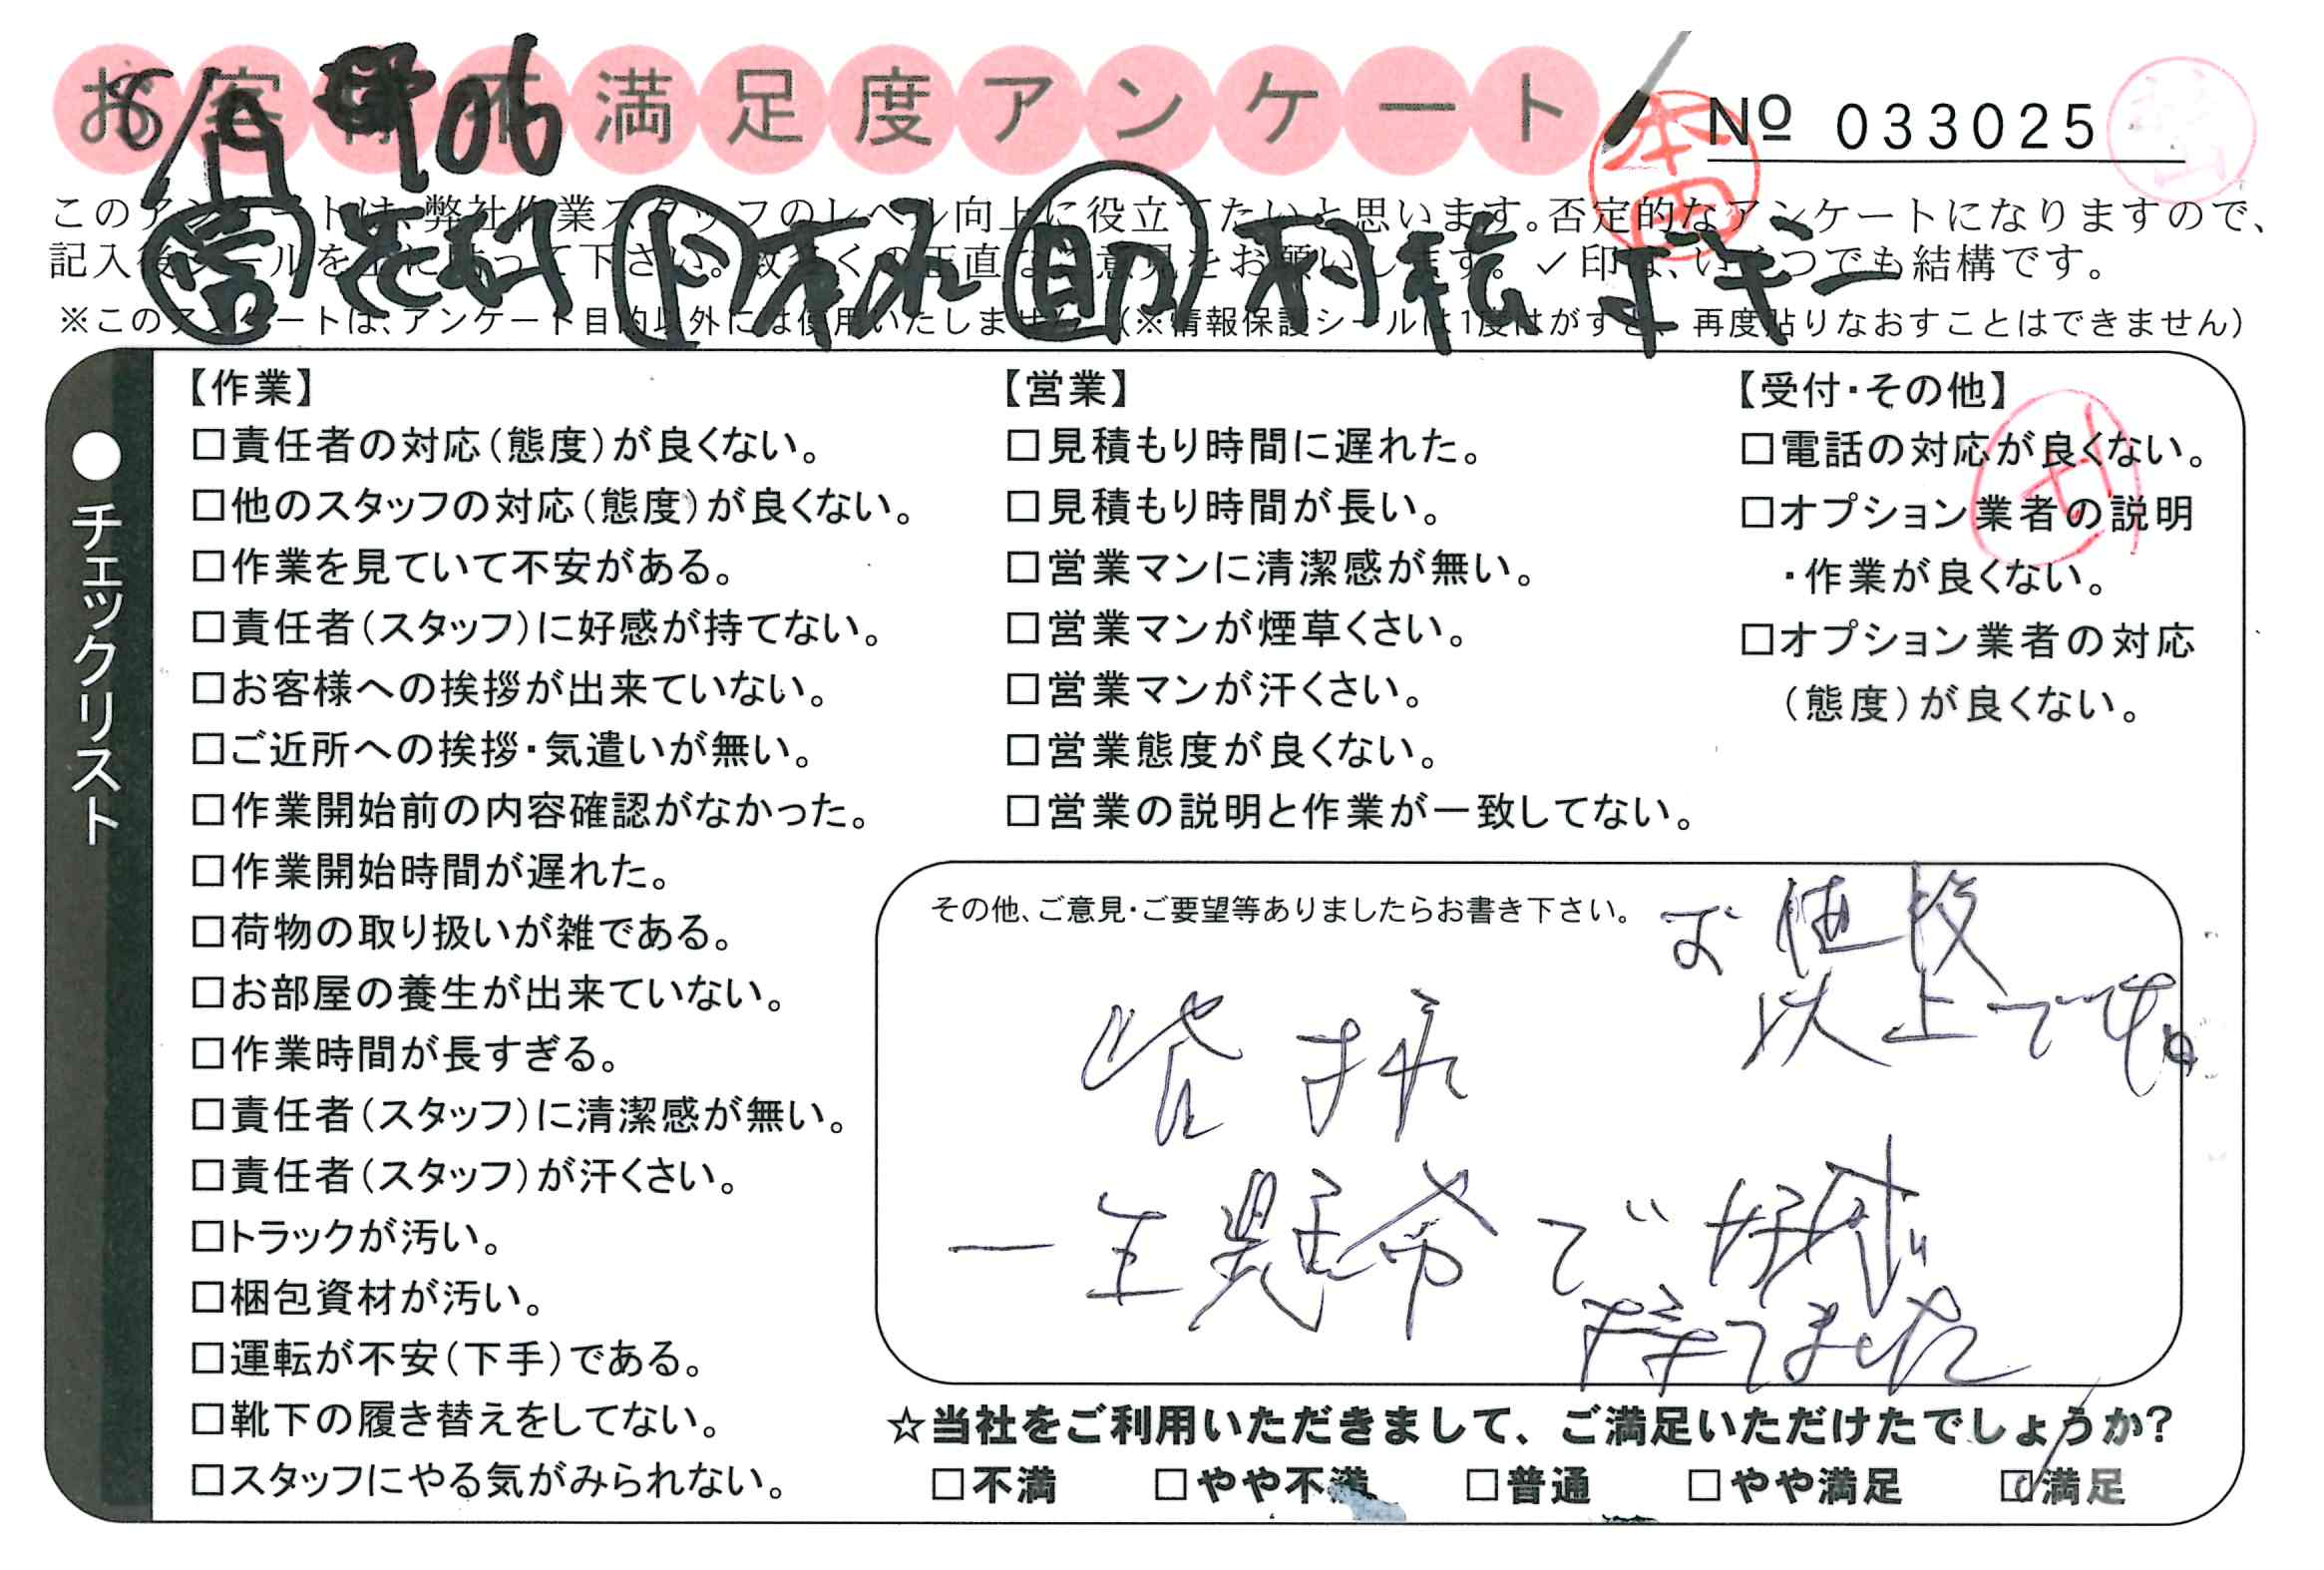 お客様不満足度アンケート
№ 033025
本田
このアンケートは、弊社作業スタッフのレベル向上に役立てたいと思います。否定的なアンケートになりますので、
記入後シールを上にはって下さい。数多くの正直なご意見をお願いします。✓印は、いくつでも結構です。
※このアンケートは、アンケート目的以外には使用いたしません。(※情報保護シールは1度はがすと、再度貼りなおすことはできません)
●チェックリスト
【作業】
□責任者の対応(態度)が良くない。
□他のスタッフの対応(態度)が良くない。
□作業を見ていて不安がある。
□責任者(スタッフ)に好感が持てない。
□お客様への挨拶が出来ていない。
□ご近所への挨拶・気遣いが無い。
□作業開始前の内容確認がなかった。
□作業開始時間が遅れた。
□荷物の取り扱いが雑である。
□お部屋の養生が出来ていない。
□作業時間が長すぎる。
□責任者(スタッフ)に清潔感が無い。
□責任者(スタッフ)が汗くさい。
□トラックが汚い。
□梱包資材が汚い。
□運転が不安(下手)である。
□靴下の履き替えをしてない。
□スタッフにやる気がみられない。
【営業】
□見積もり時間に遅れた。
□見積もり時間が長い。
□営業マンに清潔感が無い。
□営業マンが煙草くさい。
□営業マンが汗くさい。
□営業態度が良くない。
□営業の説明と作業が一致してない。
【受付・その他】
□電話の対応が良くない。
□オプション業者の説明
・作業が良くない。
□オプション業者の対応
(態度)が良くない。
その他、ご意見・ご要望等ありましたらお書き下さい。
お値段
以上です。
皆様
一生懸命で好感が
持てました
☆当社をご利用いただきまして、ご満足いただけたでしょうか?
□不満 □やや不満 □普通 □やや満足 ☑満足